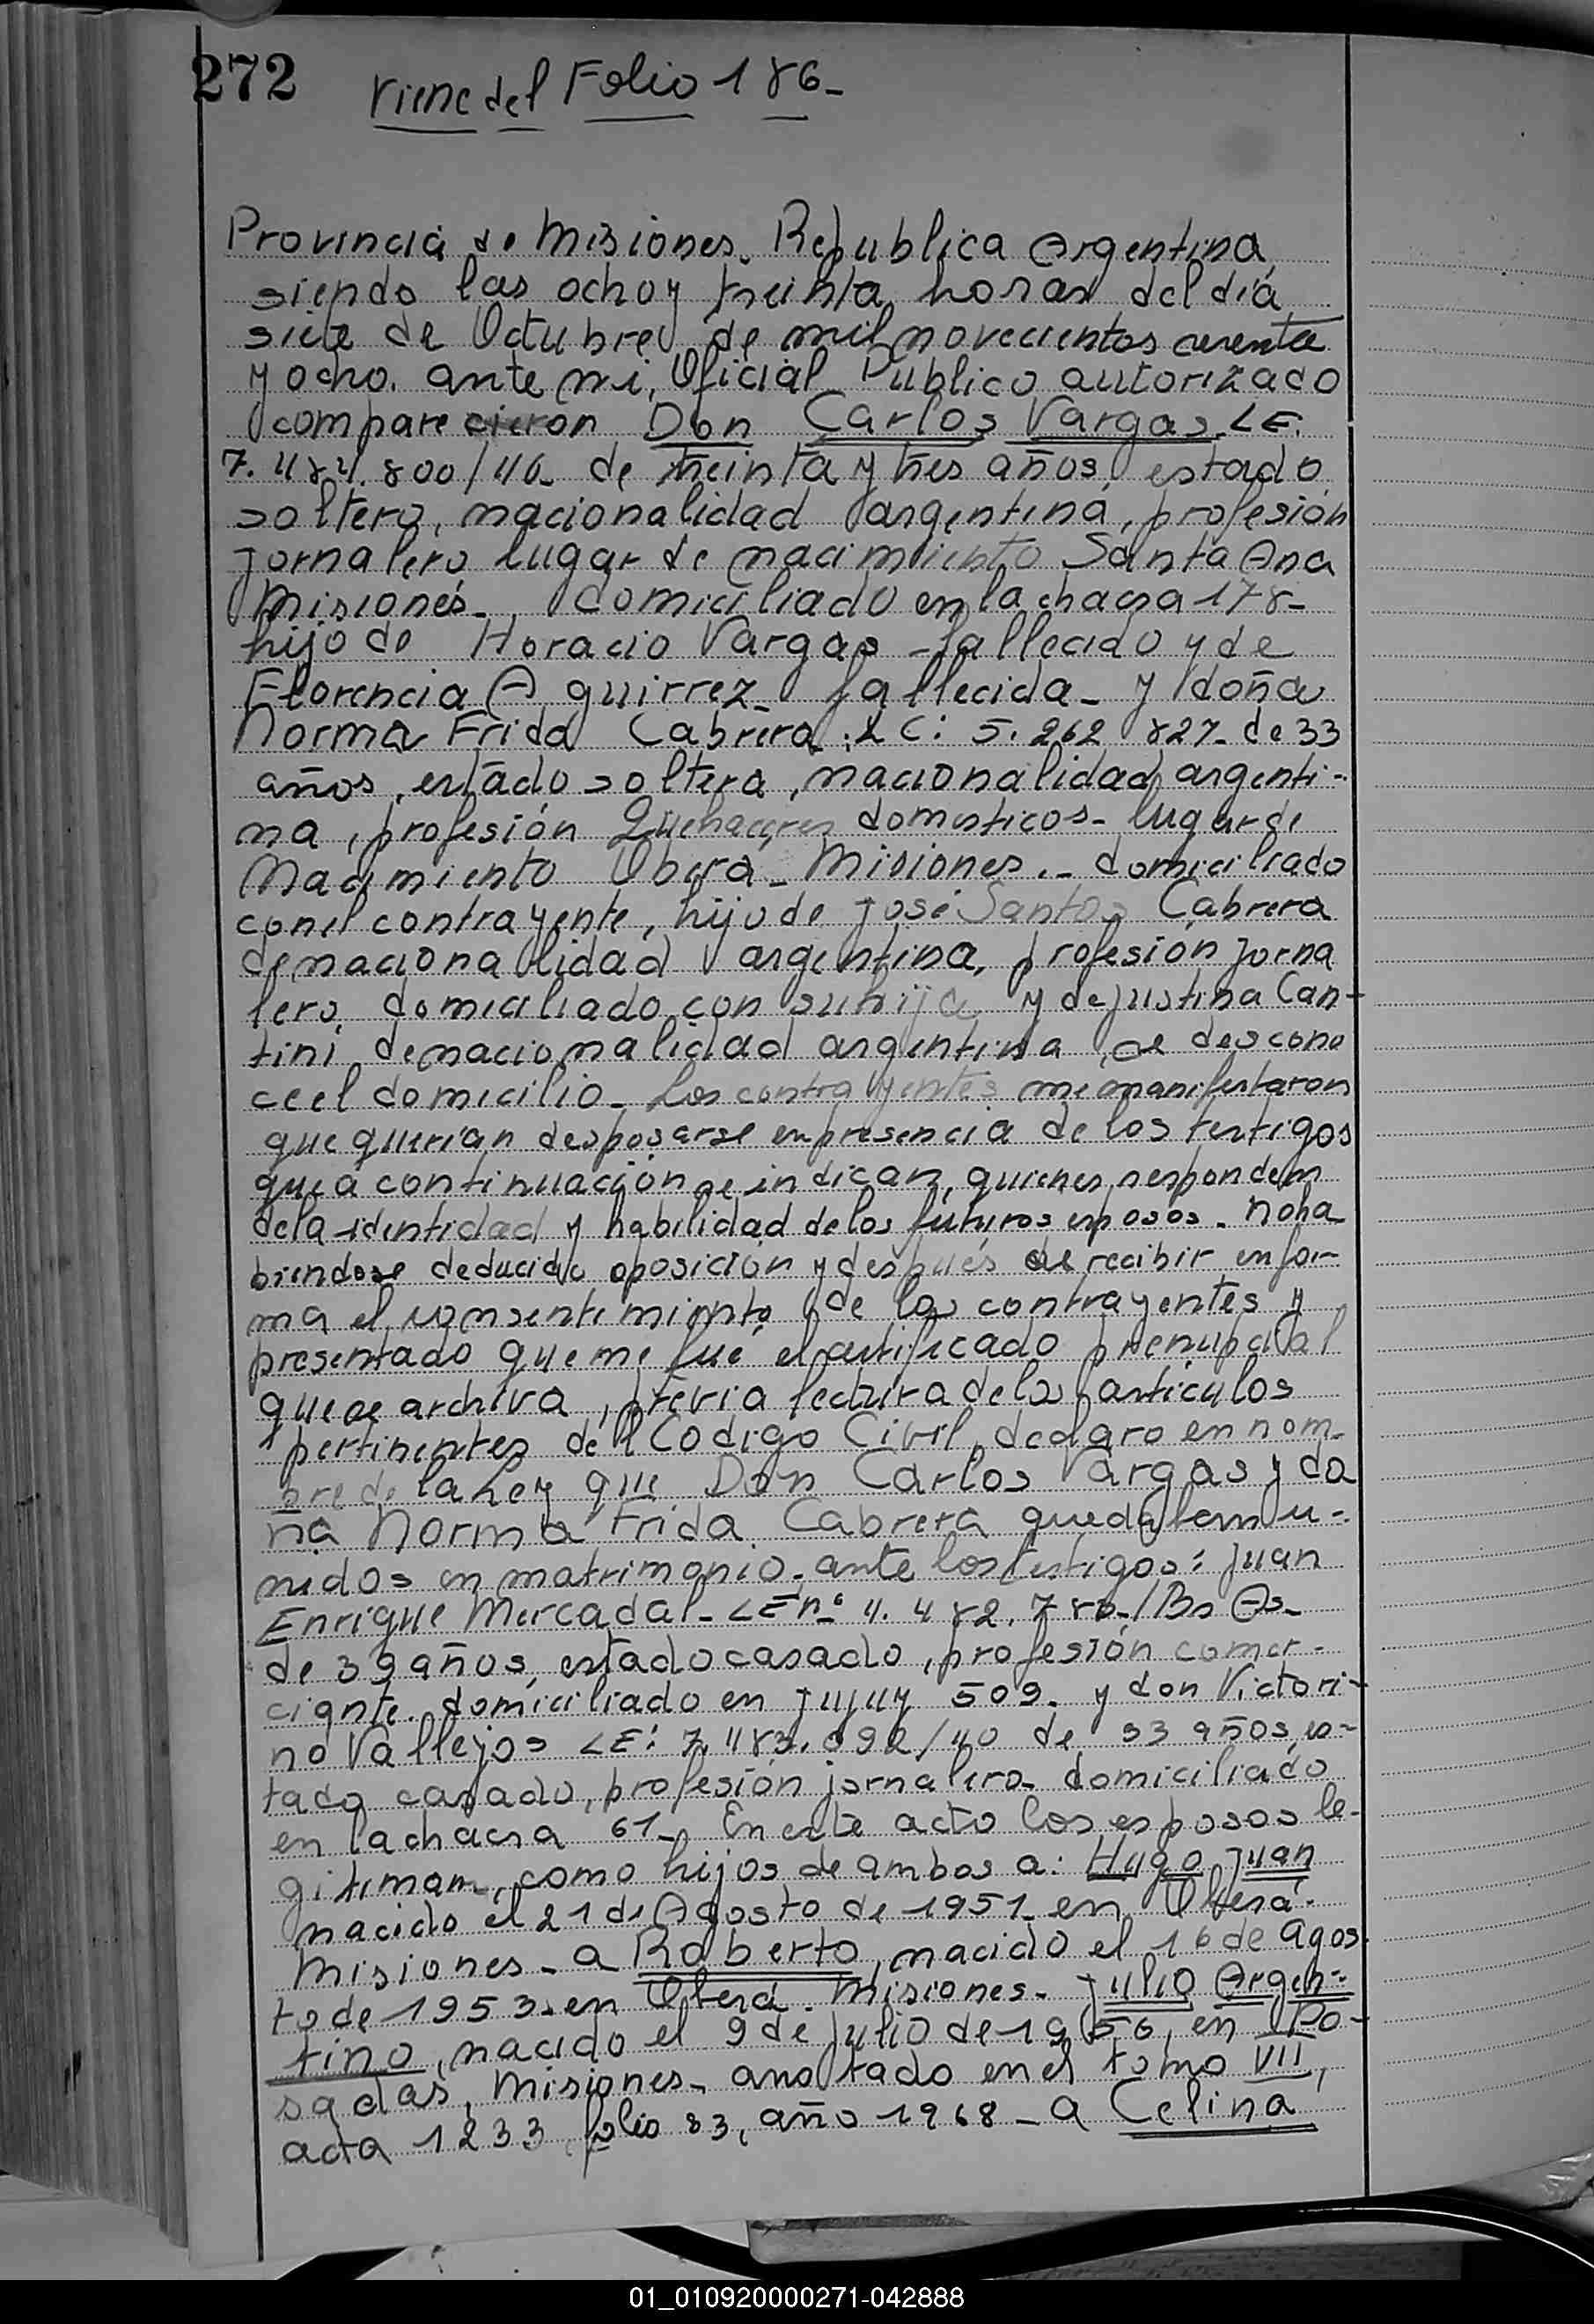 272 Viene del Folio 186-
Provincia de Misiones. Republica Argentina,
siendo las ocho y treinta horas del día
siete de Octubre de mil novecientos
y ocho. ante mi, Oficial Publico autorizado
comparecieron Don Carlos Vargas. LE.
7.484.800/46- de treinta y tres años, estado
soltero, nacionalidad argentina, profesión
jornalero lugar de nacimiento Santa Ana
Misiones- domiciliado en la chacra 178-
hijo de Horacio Vargas - fallecido y de
Florencia Aguirrez- fallecida- y doña
Norma Frida Cabrera. LC: 5.262 827- de 33
años, estado soltera, nacionalidad argenti-
na, profesión Quehaceres domesticos- lugar de
Nacimiento Obera- Misiones.- domiciliado
con el contrayente, hijo de José Santos Cabrera
de nacionalidad argentina, profesión jorna
lero, domiciliado con su hija y de Justina Can-
tini de nacionalidad argentina se descono
ce el domicilio- Los contrayentes me manifestaron
que querian desposarse en presencia de los testigos
que a continuación se indican, quienes responden
de la identidad y habilidad de los futuros esposos. no ha
biendose deducido oposición y después de recibir en for-
ma el consentimiento de los contrayentes y
presentado que me fué el certificado prenupcial
que se archiva, previa lectura de los articulos
pertinentes del Codigo Civil, declaro en nom-
bre de la Ley que Don Carlos Vargas y do
ña Norma Frida Cabrera quedaban u-
nidos en matrimonio. ante los testigos: Juan
Enrique Mercadal- LE nº 4.482.780-/Bs As-
de 39 años, estado casado, profesión comer-
ciante. domiciliado en Jujuy 509- y don Victori-
no Vallejos LE: 7.483.092/40 de 33 años, es-
tado casado, profesión jornalero- domiciliado
en la chacra 61- En este acto los esposos le-
gitiman, como hijos de ambos a: Hugo Juan
nacido el 21 de Agosto de 1951 en Oberá-
Misiones- a Roberto, nacido el 16 de Agos
to de 1953- en Oberá- Misiones- Julio Argen-
tino, nacido el 9 de Julio de 1956, en Po-
sadas, Misiones- anotado en el tomo VII,
acta 1233 folio 83, año 1968 - a Celina
01_010920000271-042888